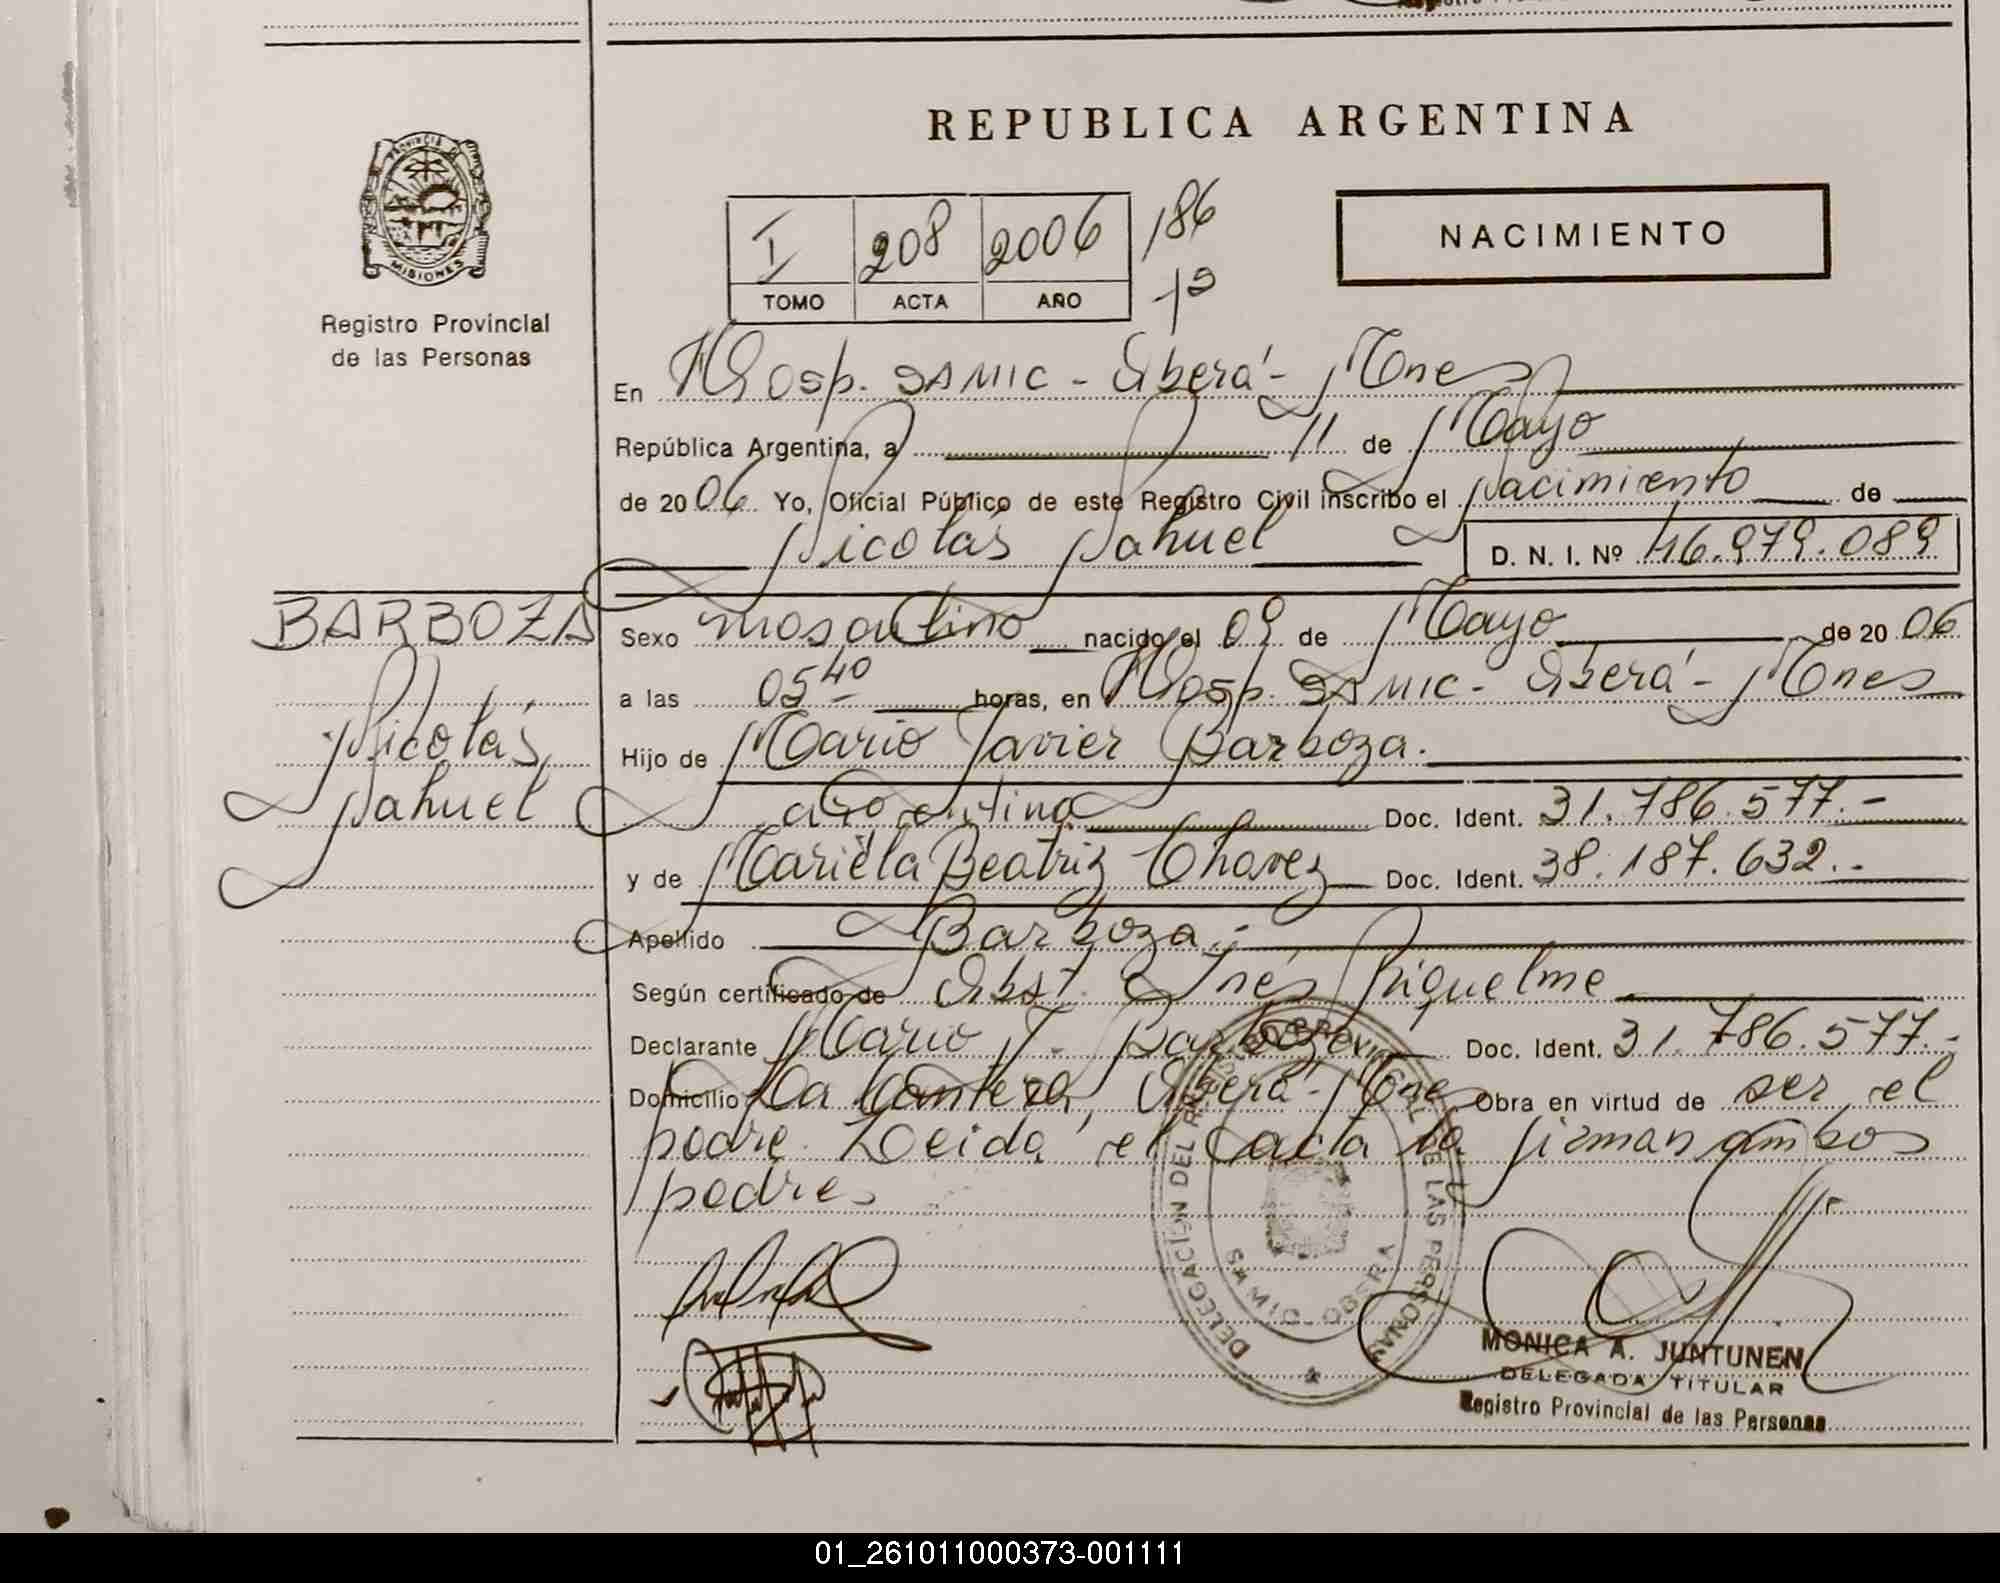 REPUBLICA ARGENTINA
PROVINCIA DE
MISIONES
Registro Provincial
de las Personas
I 208 2006 186
TOMO ACTA AÑO
NACIMIENTO
En Hosp. SAMIC - Oberá - Mnes
República Argentina, a 11 de Mayo
de 2006 Yo, Oficial Público de este Registro Civil inscribo el nacimiento de
Nicolás Nahuel D. N. I. Nº 46.979.089
BARBOZA
Nicolás
Nahuel
Sexo masculino nacido el 09 de Mayo de 2006
a las 05 40 horas, en Hosp. SAMIC - Oberá - Mnes
Hijo de Mario Javier Barboza.
argentina Doc. Ident. 31.786.577.-
y de Mariela Beatriz Chavez Doc. Ident. 38.187.632.-
Apellido Barboza.-
Según certificado de Obst. Inés Riquelme
Declarante Mario J. Barboza Doc. Ident. 31.786.577.-
Domicilio La Cantera, Oberá - Mnes Obra en virtud de ser el
padre. Leida el acta la firman ambos
padres
DELEGACION DEL REGISTRO PROVINCIAL DE LAS PERSONAS
OBERA
MONICA A. JUNTUNEN
DELEGADA TITULAR
Registro Provincial de las Personas
01_261011000373-001111